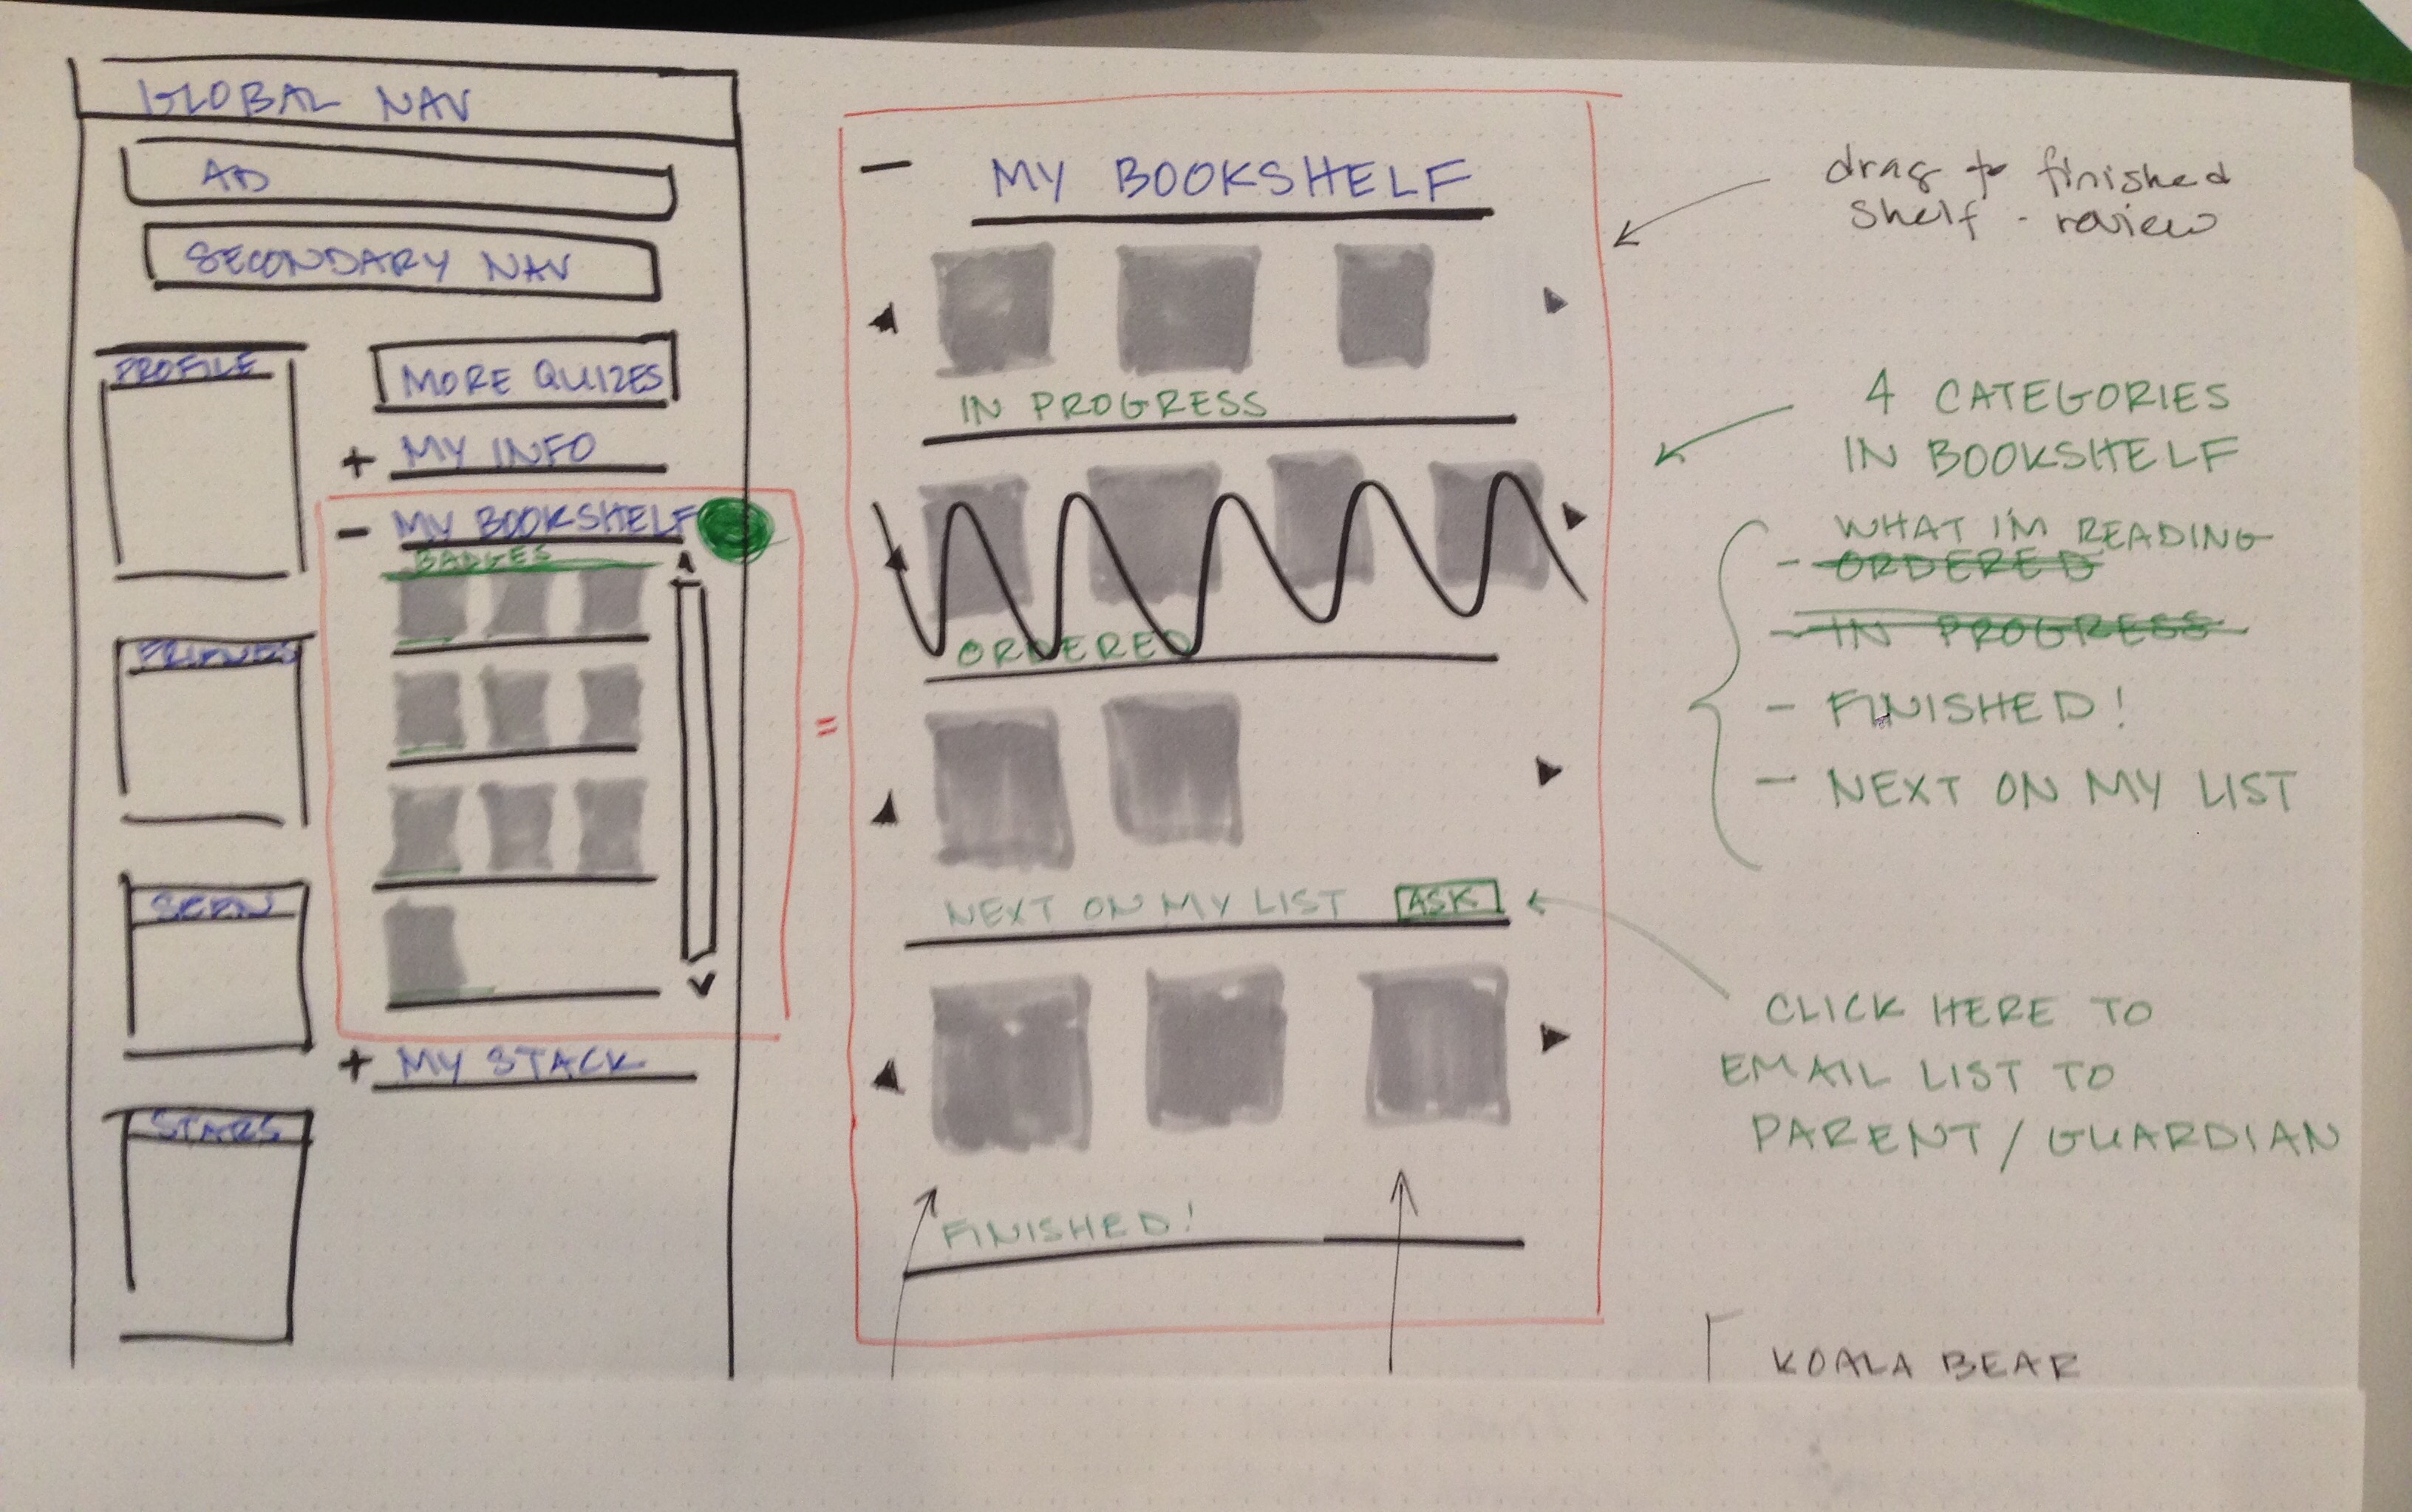 GLOBAL NAV
AD
SECONDARY NAV
PROFILE
MORE QUIZES
+ MY INFO
- MY BOOKSHELF
BADGES
FRIENDS
SEEN
+ MY STACK
STARS
=
- MY BOOKSHELF
IN PROGRESS
ORDERED
NEXT ON MY LIST ASK
FINISHED!
drag to finished
shelf - review
4 CATEGORIES
IN BOOKSHELF
WHAT I'M READING
- ORDERED
- IN PROGRESS
- FINISHED!
- NEXT ON MY LIST
CLICK HERE TO
EMAIL LIST TO
PARENT / GUARDIAN
KOALA BEAR